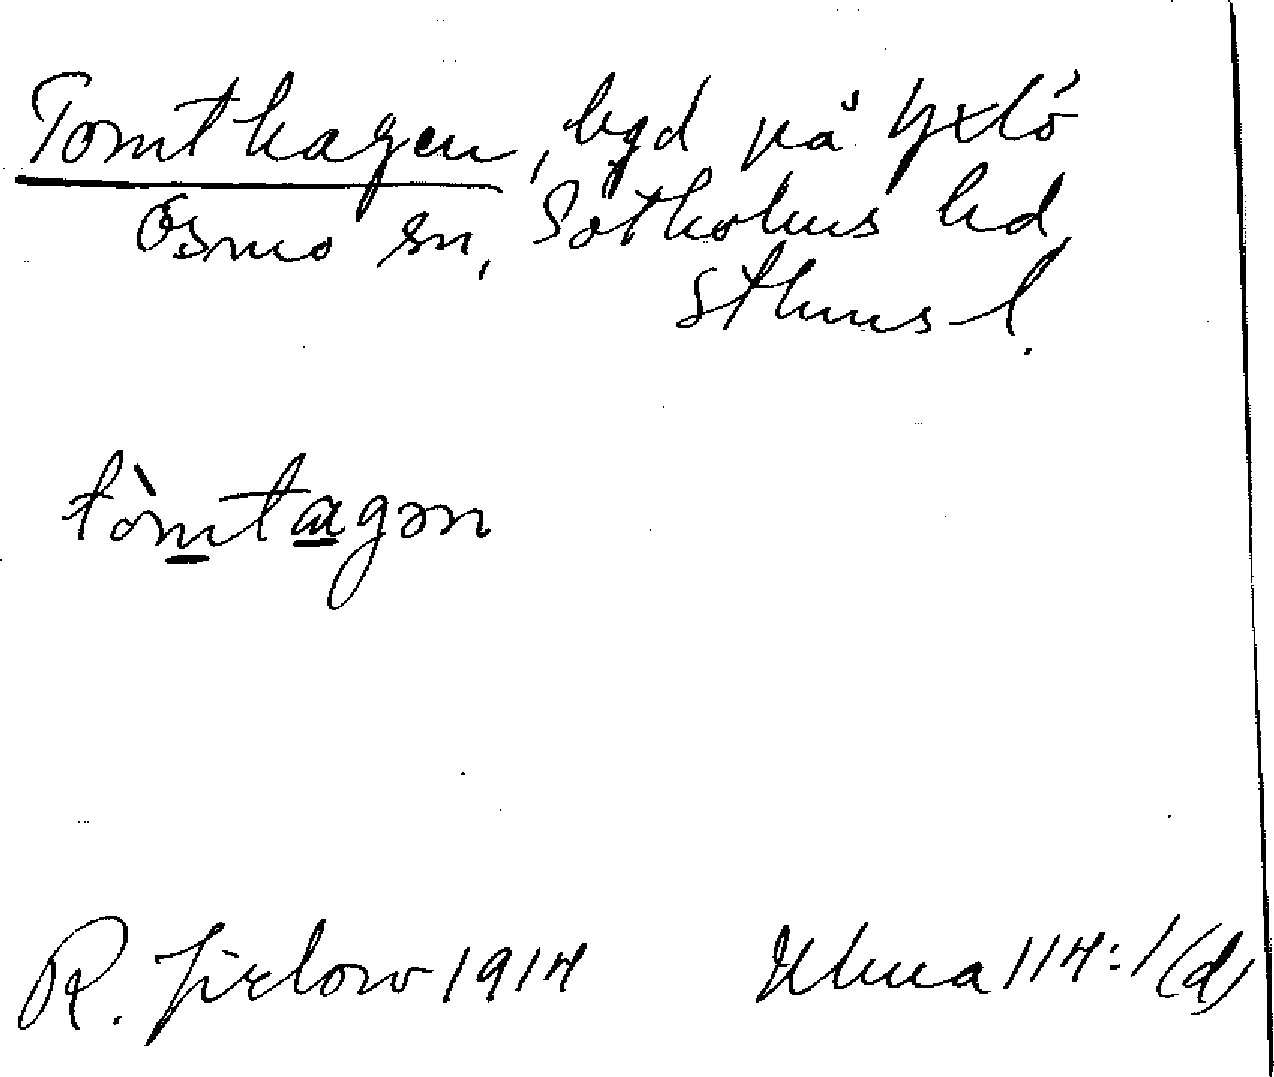 Tomthagen, bgd på Yxlö
Ösmo sn, Sotholms hd,
Sthms l.
tòmtagən
R. Jirlow 1914
Ulma 114:1(d)